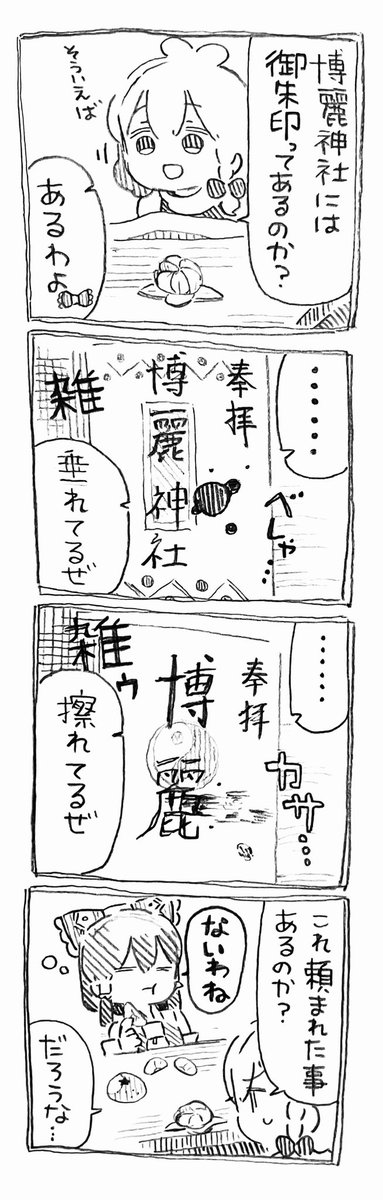 博麗神社には
御朱印ってあるのか?
そういえば
あるわよ
・・・・・・
奉拝
博麗神社
雑
べしゃ…
垂れてるぜ
・・・・・・
奉拝
博麗
雑ゥ
カサ…
擦れてるぜ
これ頼まれた事
あるのか?
ないわね
だろうな…